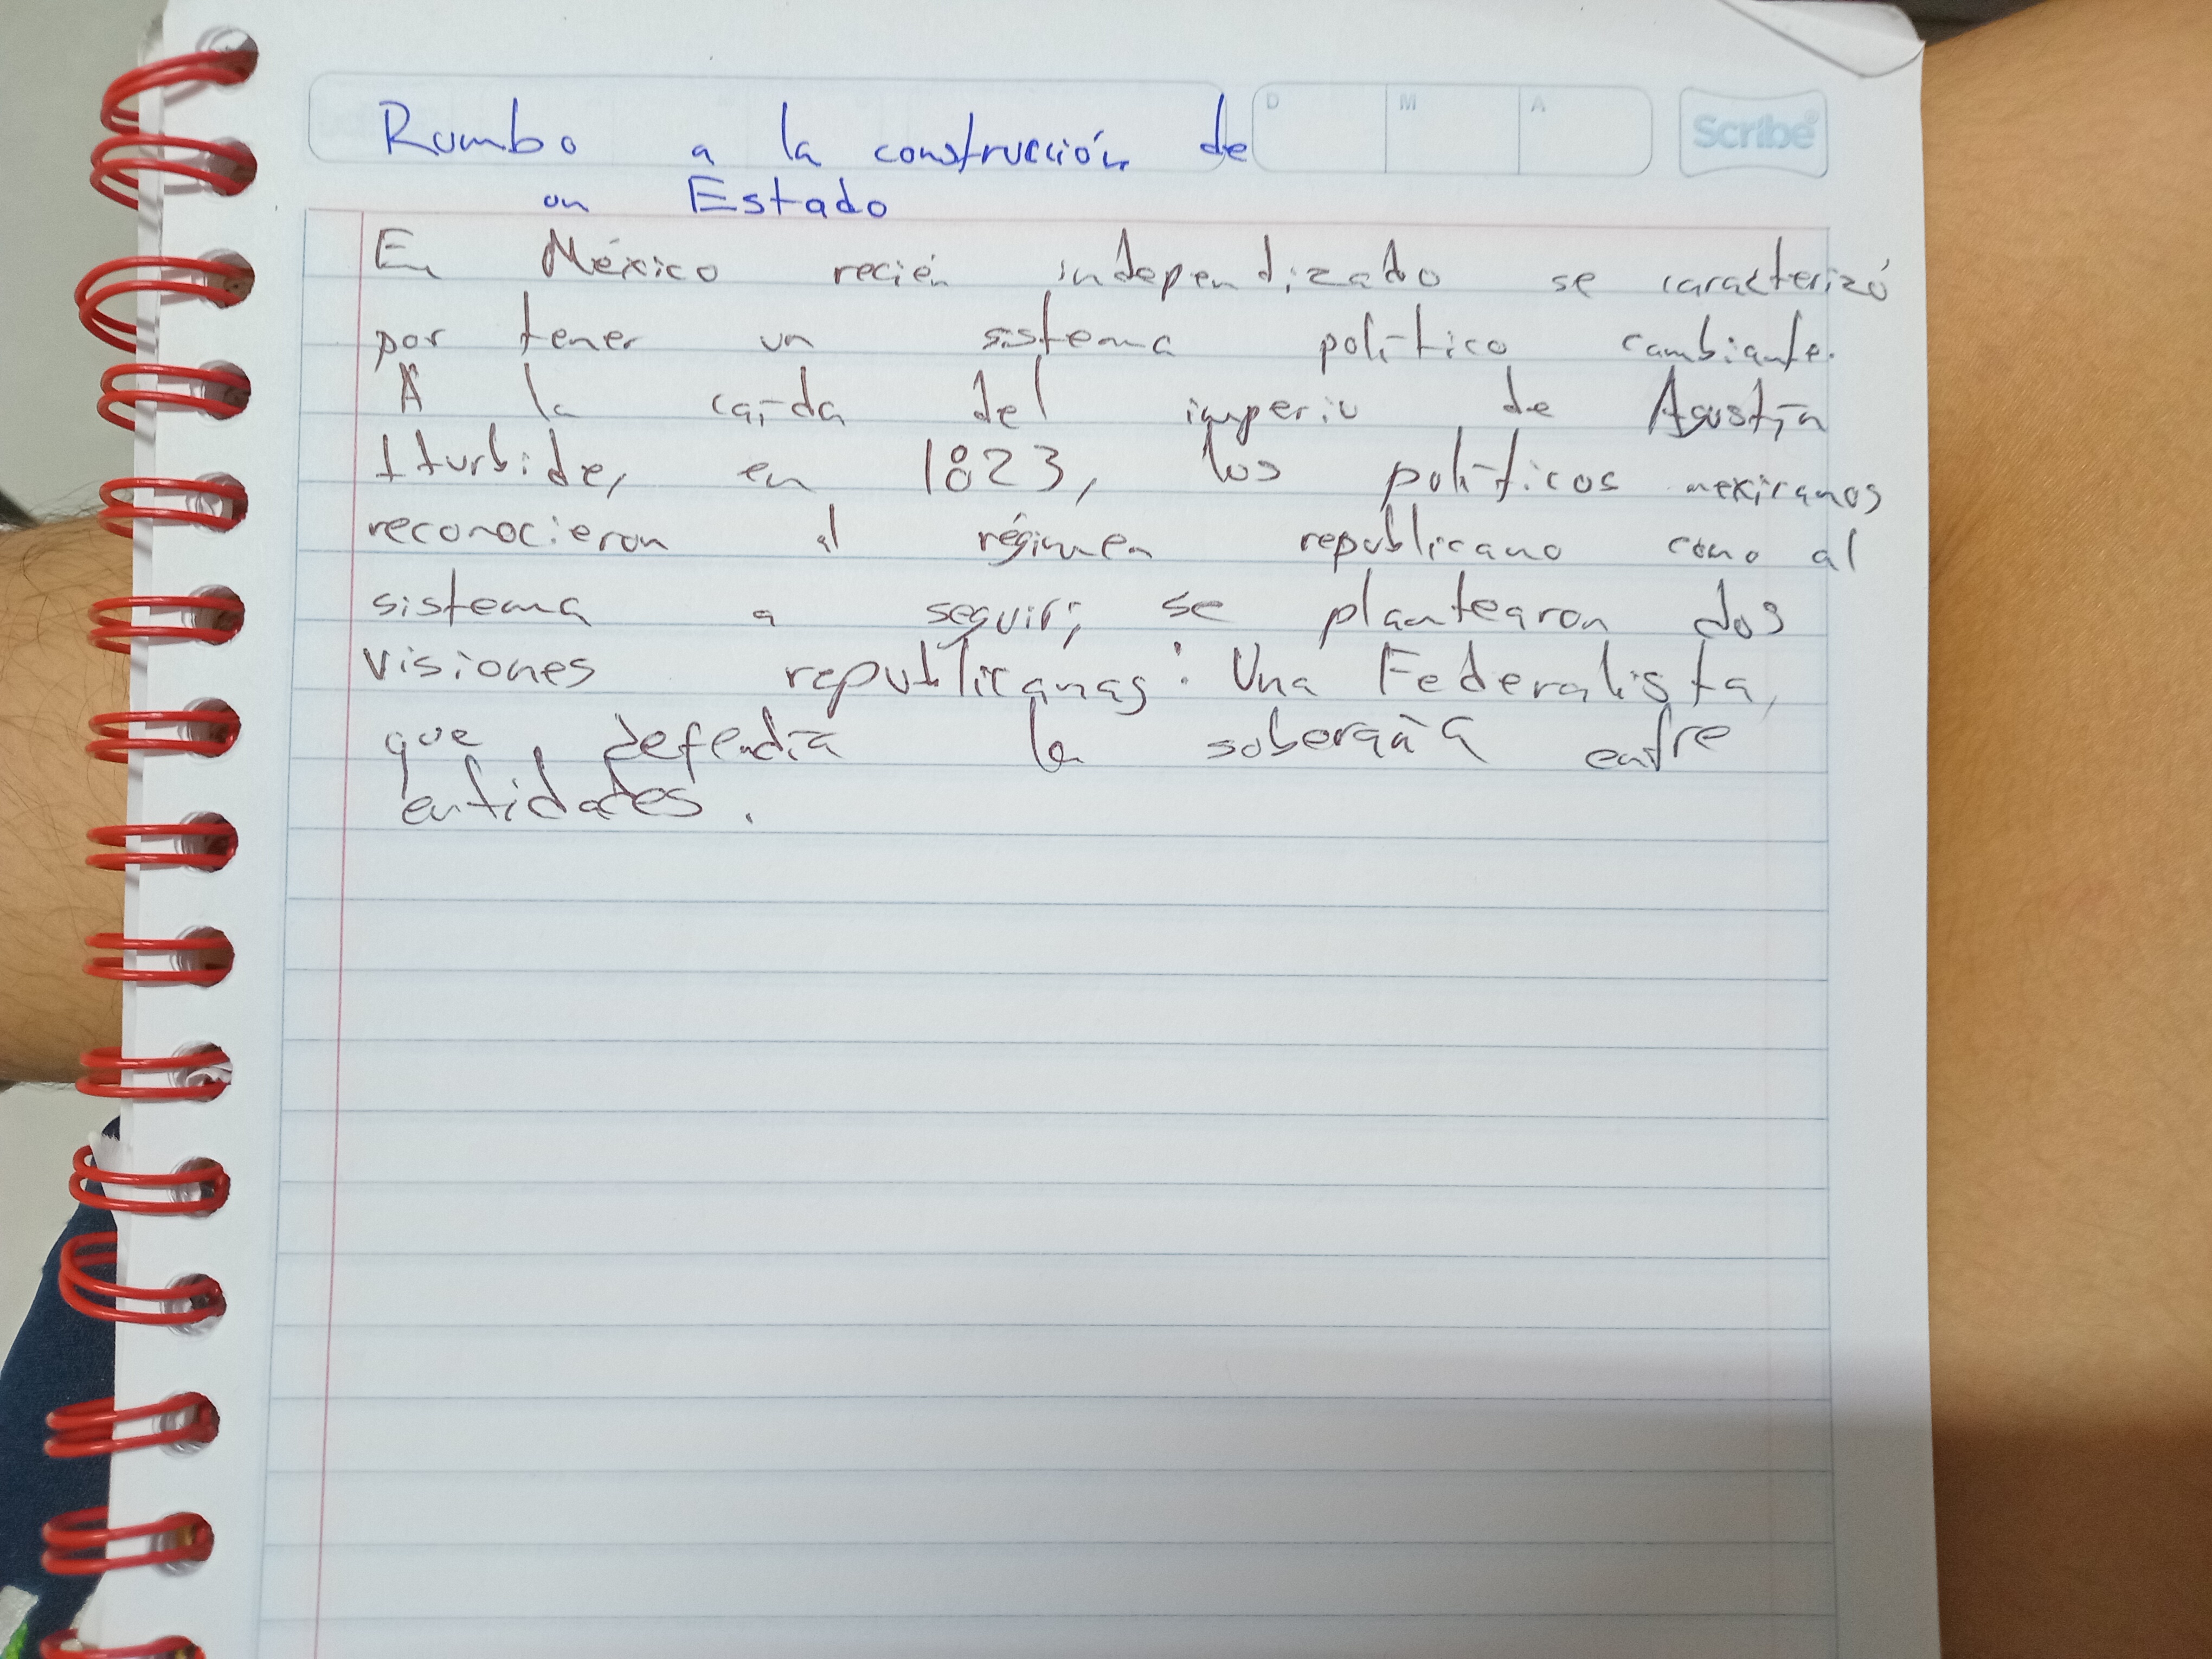 Rumbo a la construcción de
un Estado
D M A
Scribe
En México recién independizado se caracterizó
por tener un sistema político cambiante.
A la caída del imperio de Agustín
Iturbide, en 1823, los políticos mexicanos
reconocieron al régimen republicano como al
sistema a seguir; se plantearon dos
visiones republicanas: Una Federalista,
que defendía la soberaía entre
entidades.